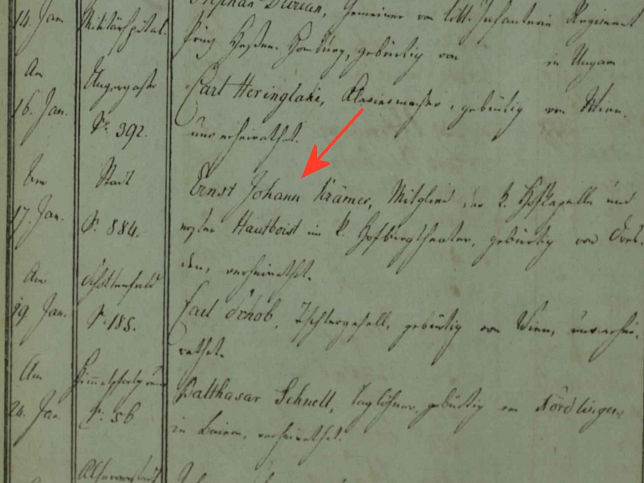 14. Jan. Militärspital. Stephan Durian, Gemeiner vom löbl. Infanterie Regiment
Prinz Hessen Homburg, gebürtig von in Ungarn
Am Ungargasse Carl Heringlake, Claviermacher, gebürtig von Wien,
16. Jan. N. 392. unverheirathet.
Am Stadt Ernst Johann Krämer, Mitglied der k. Hofkapelle und
17. Jan. N. 884. erster Hautboist im k. Hofburgtheater, gebürtig von Dres-
den, verheirathet.
Am Schottenfeld Carl Schob, Tischlergesell, gebürtig von Wien, unverhei-
19. Jan. N. 185. rathet.
Am Himmelpfortgrund Balthasar Schnell, Taglöhner, gebürtig von Nördlingen
24. Jan. N. 56 in Baiern, verheirathet.
Alservorstadt